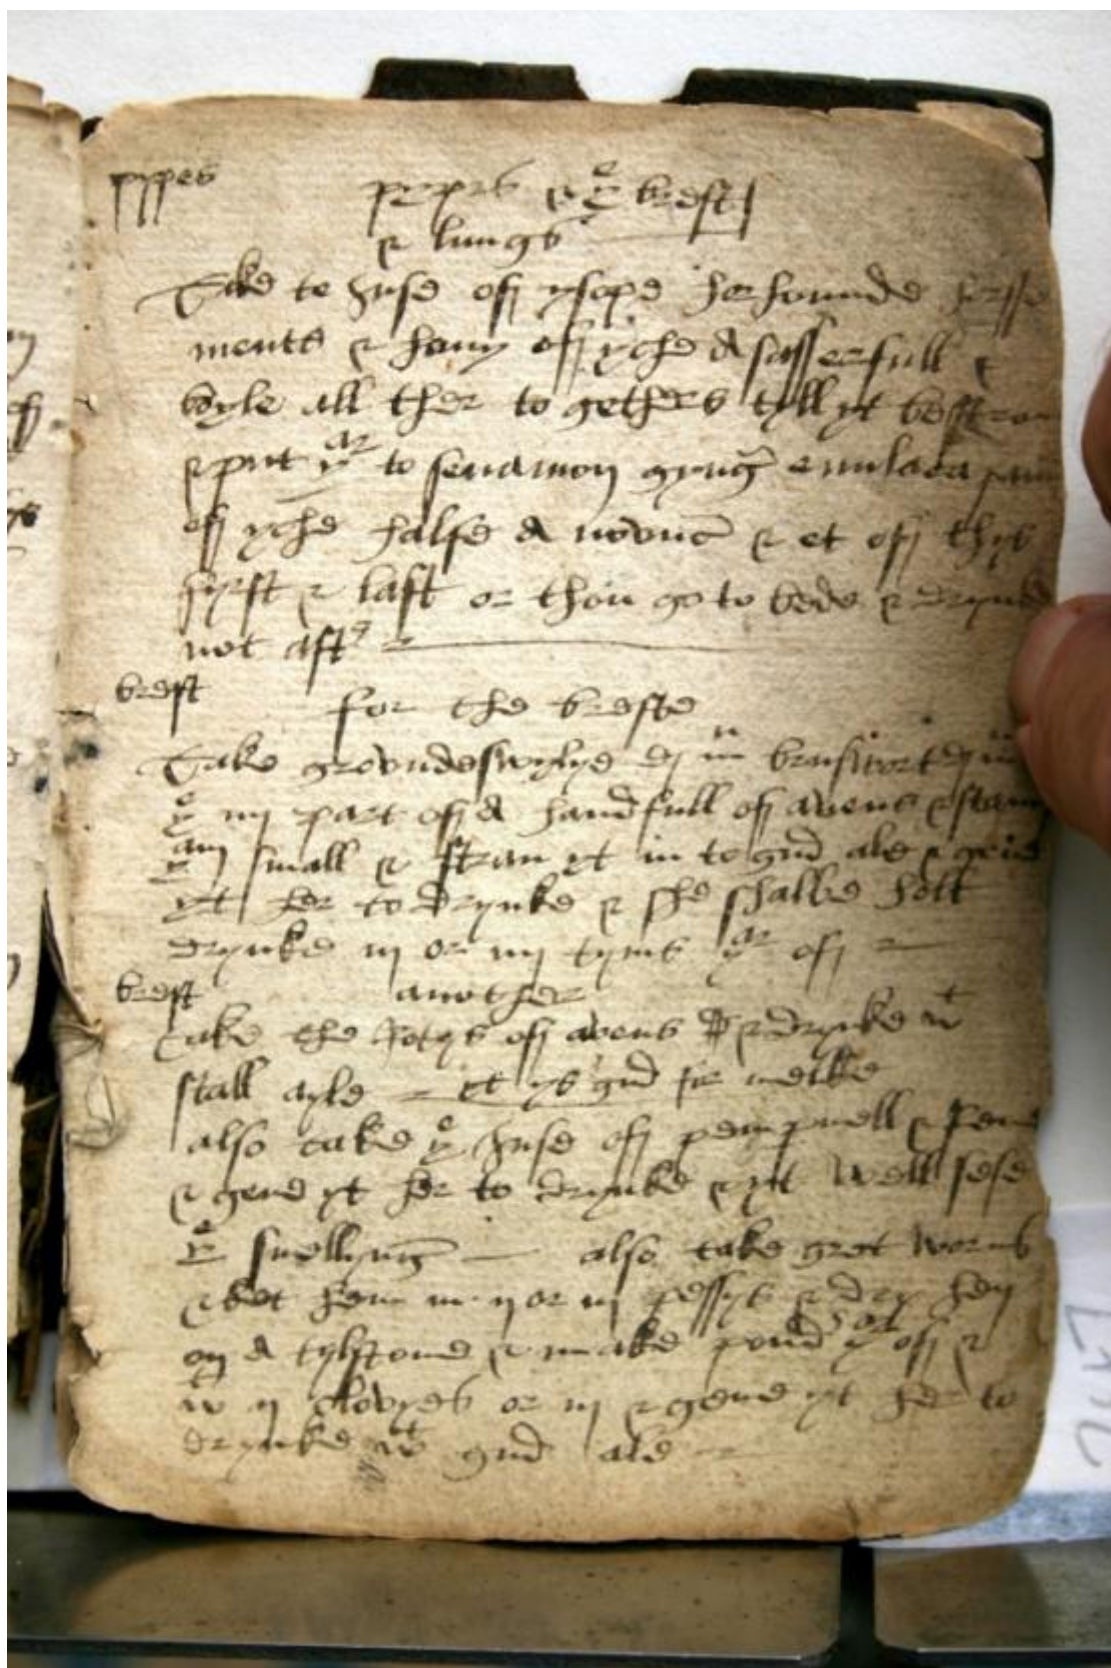 pyppes
pypis & þe brest
& lungs
Take te Juse off ysope horhounde
ments & hony off yche A sasserfull &
boyle all ther to gethers tyll yt
& put þar to senamon gyng
off yche halfe A & et off thys
fyrst & last or thou go to bede & drynke
not aft
brest
for the breste
Take growndeswylye
þe iiij part off A handfull off avens & stamp
þam small & stran yt in to gud ale & geve
yt her to drynke & she shalbe holl
drynke iij or iiij tyms þar off
brest
another
take the Rotys off avens & drynke wt
stall ayle yt ys gud for
also take þe Juse off pympnell &
& geve yt her to drynke & yt well sese
þe swellyng also take gret worms
& kot hem in ij or iij & dry hem
on A tylstone & make poud þar off &
wt ij clovyes or iij & geve yt her to
drynke wt gud ale